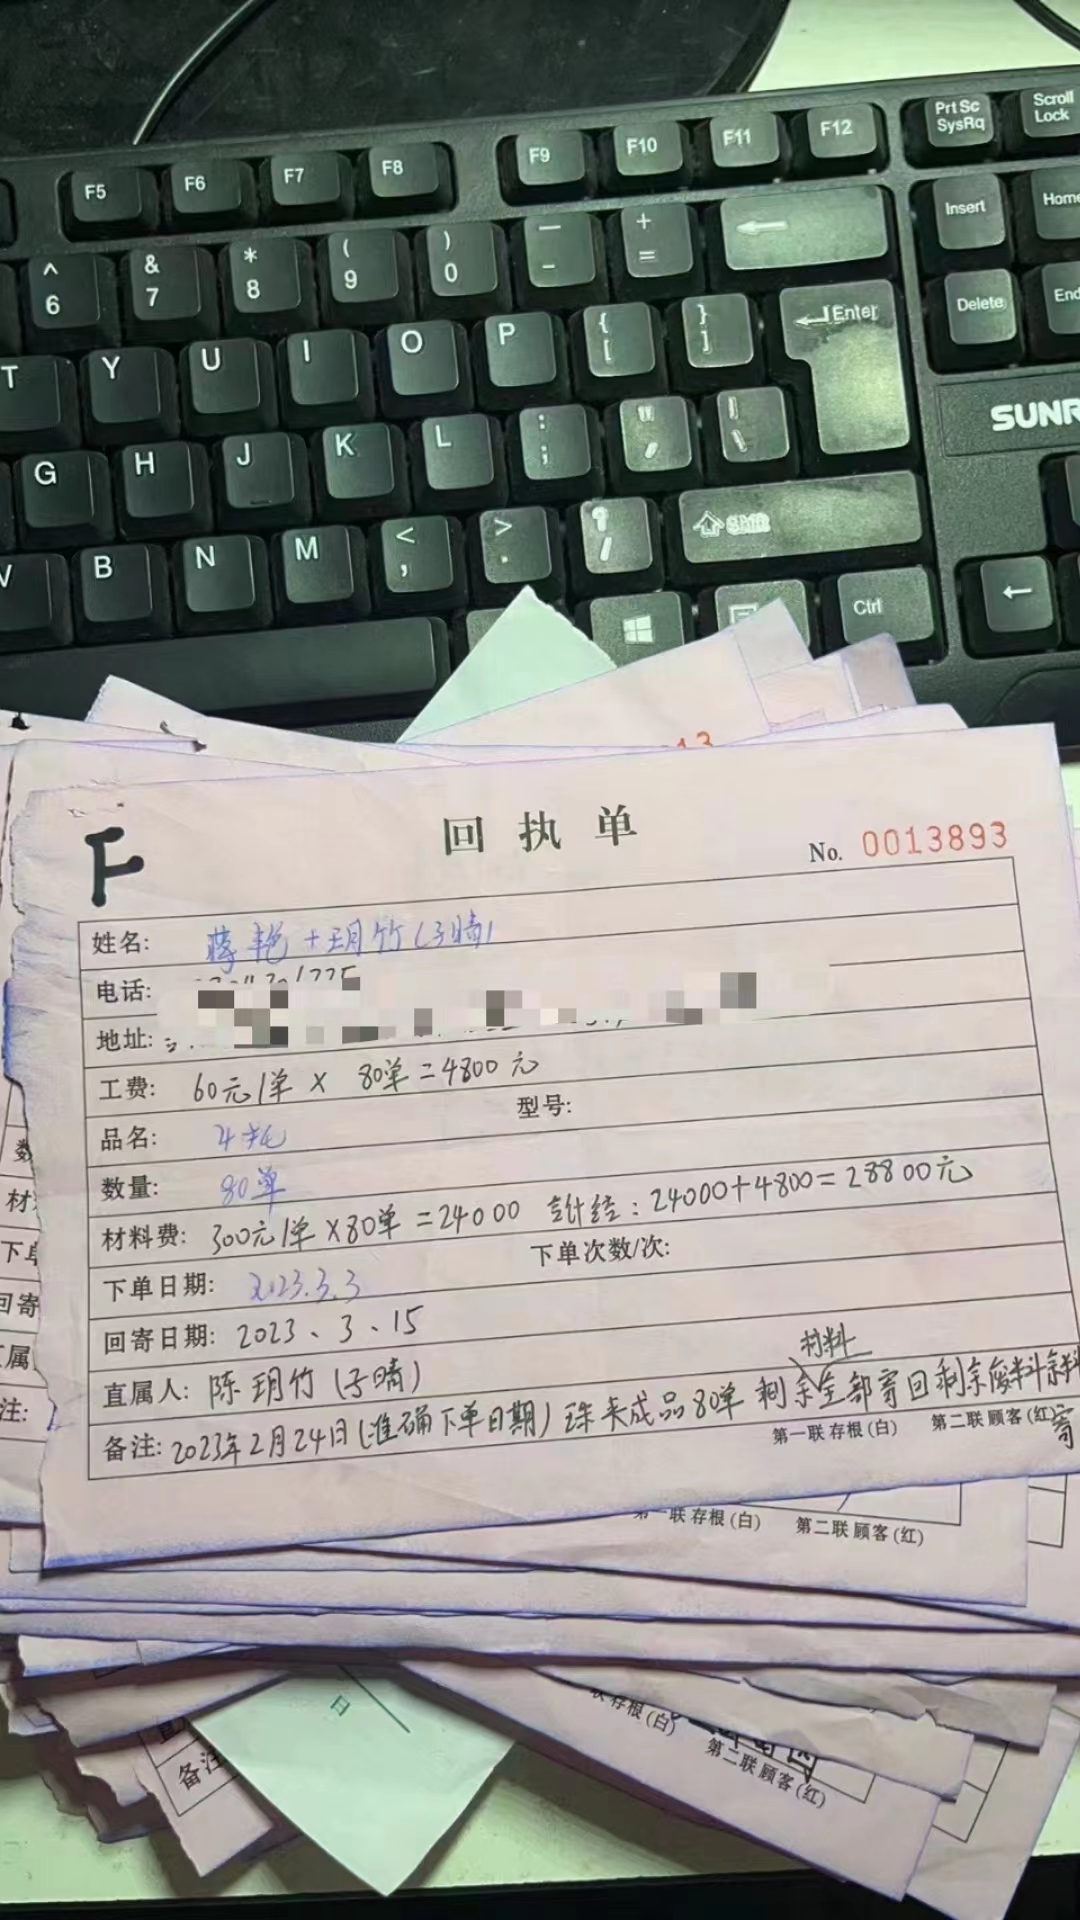 F5 F6 F7 F8 F9 F10 F11 F12 Prt Sc SysRq Scroll Lock
^ 6 & 7 * 8 ( 9 ) 0 — - + = Insert Home
T Y U I O P { [ } ] Enter Delete End
G H J K L : ; " , | \ SUNR
V B N M < , > . ? / Shift
Ctrl
13
回执单
No. 0013893
F
姓名: 蒋艳+玥竹(子晴)
电话:
地址:
工费: 60元/单 × 80单=4800元
型号:
品名: 4托
数量: 80单
材料费: 300元/单×80单=24000 合计结:24000+4800=28800元
下单次数/次:
下单日期: 2023.3.3
回寄日期: 2023、3、15
直属人: 陈玥竹(子晴)
材料
备注: 2023年2月24日(准确下单日期) 珠夹成品80单 剩余全部寄回剩余废料余料
寄
第一联 存根(白) 第二联 顾客(红)
数
材
下单
回寄
属
注:
第一联 存根(白) 第二联 顾客(红)
联 存根(白)
第二联 顾客(红)
备注
日